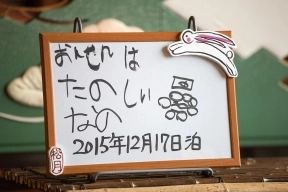 おんせん は
たのしい
なの
2015年12月17日泊
松月